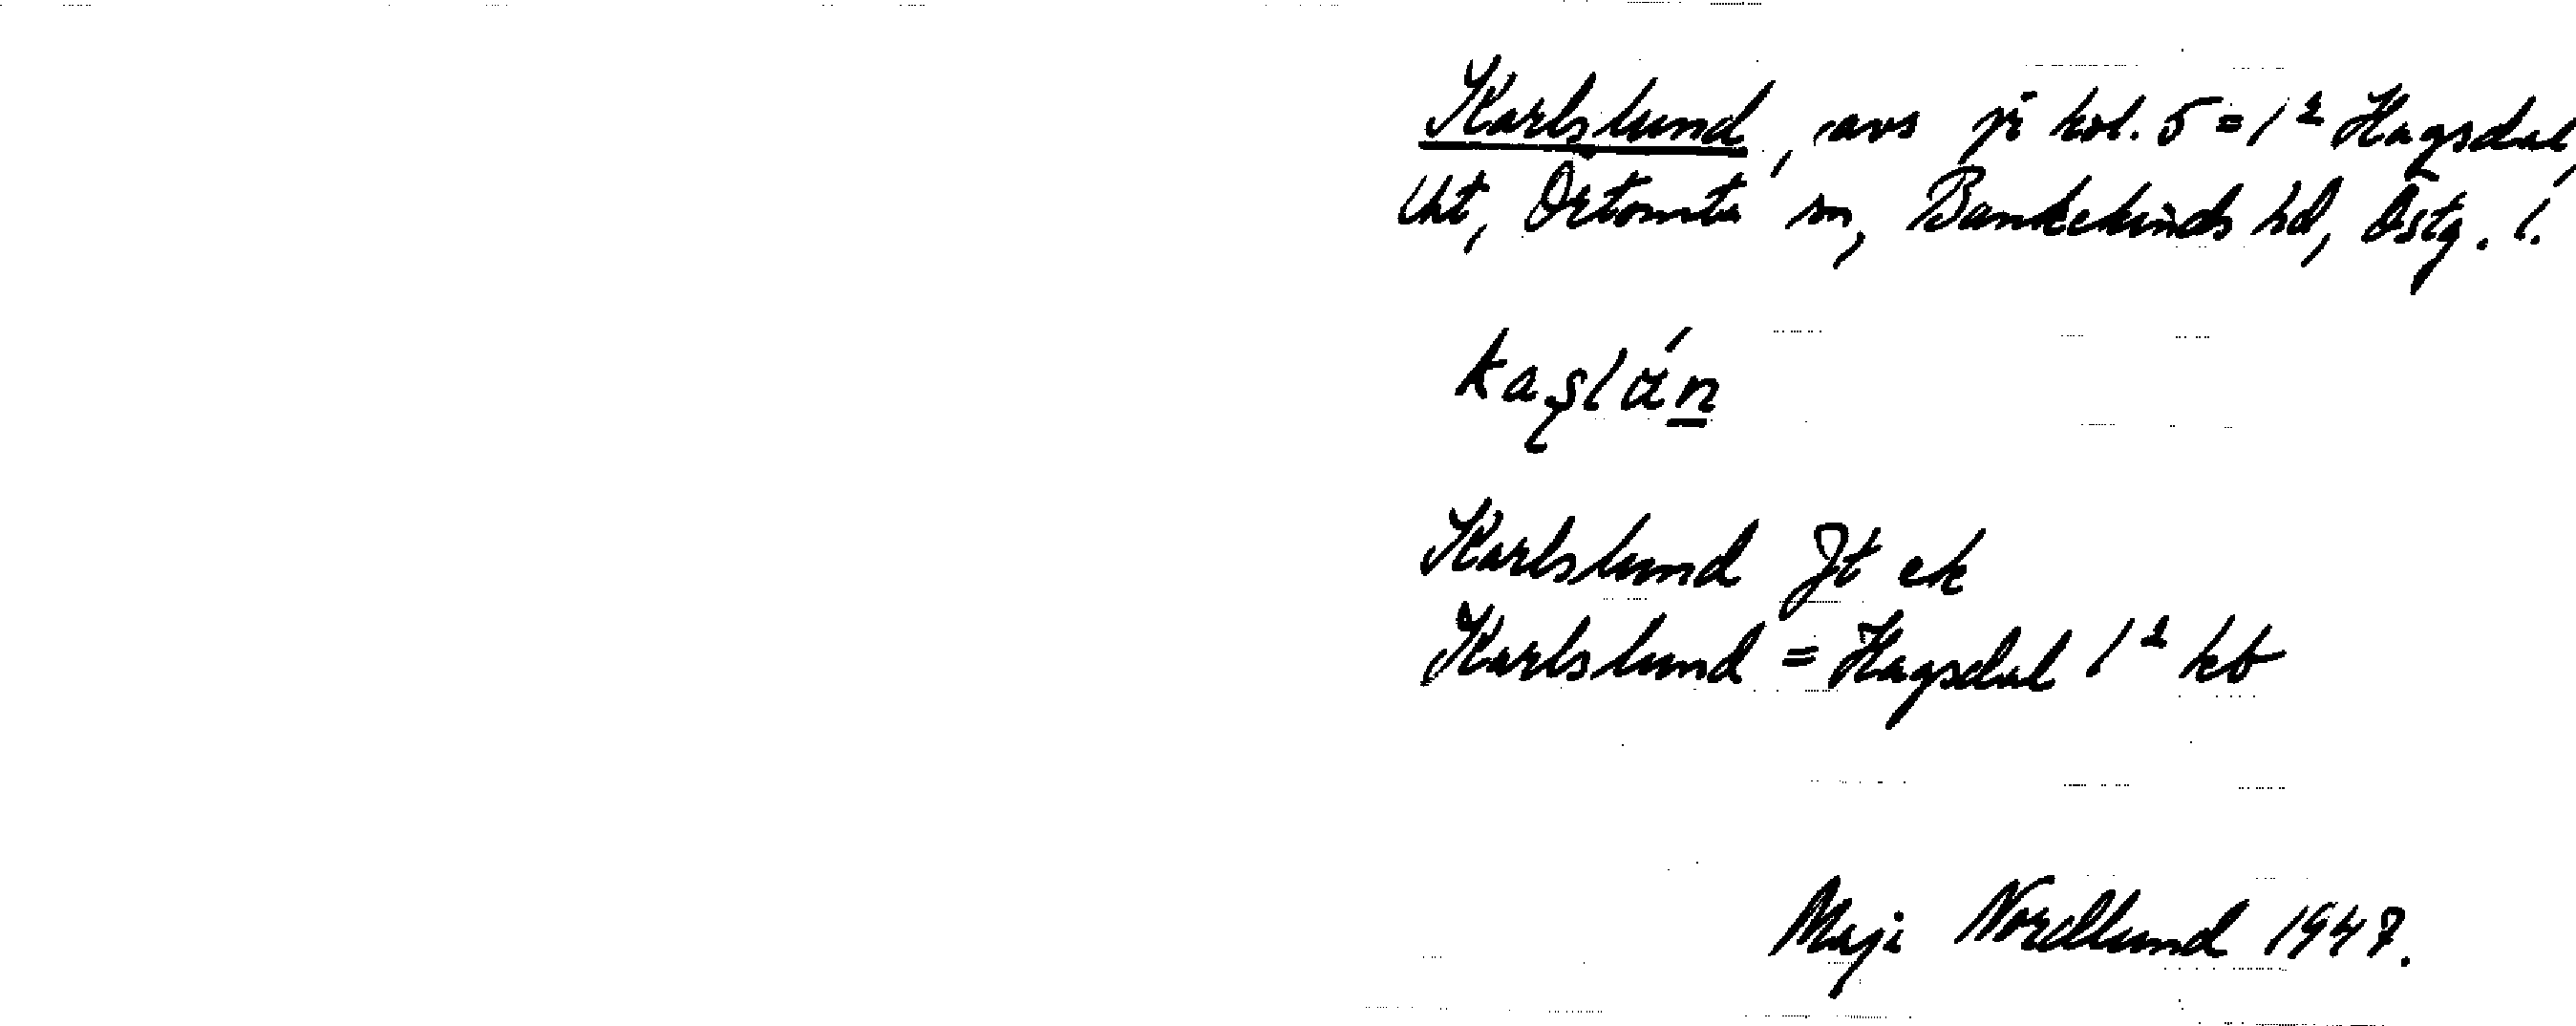 Karlslund, avs på kol. 5 = 1² Hagsdal,
Uht, Örtomta sn, Bankekinds hd, Östg. l.
kaslán
Karlslund Jt ek
Karlslund = Hagsdal 1² kb
Maja Nordlund 1947.